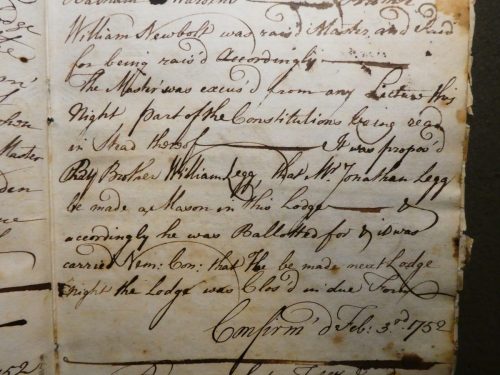 William Newbolt was rais'd Master, and Paid
for being rais'd Accordingly
The Master was excus'd from any Lecture this
Night part of the Constitutions being read
in Stead thereof It was propos'd
By Brother William Legg that Mr. Jonathan Legg
be made a Mason in this Lodge &
accordingly he was Ballotted for & it was
carried Nem: Con: that He be made next Lodge
night the Lodge was Clos'd in due Form
Confirm'd Feb: 3rd. 1752